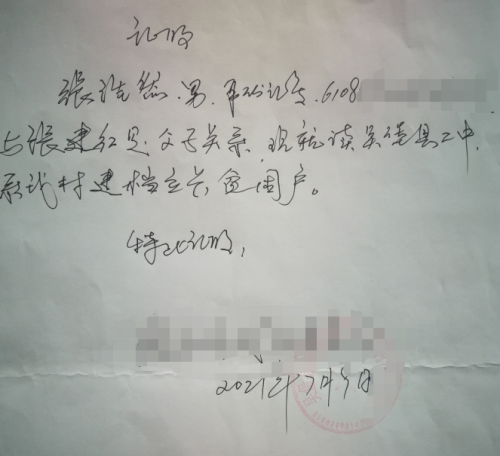 证明
张浩然.男.身份证号.6108
与张建红是父子关系.现就读吴堡县二中.
系我村建档立卡贫困户。
特此证明,
2021年7月5日